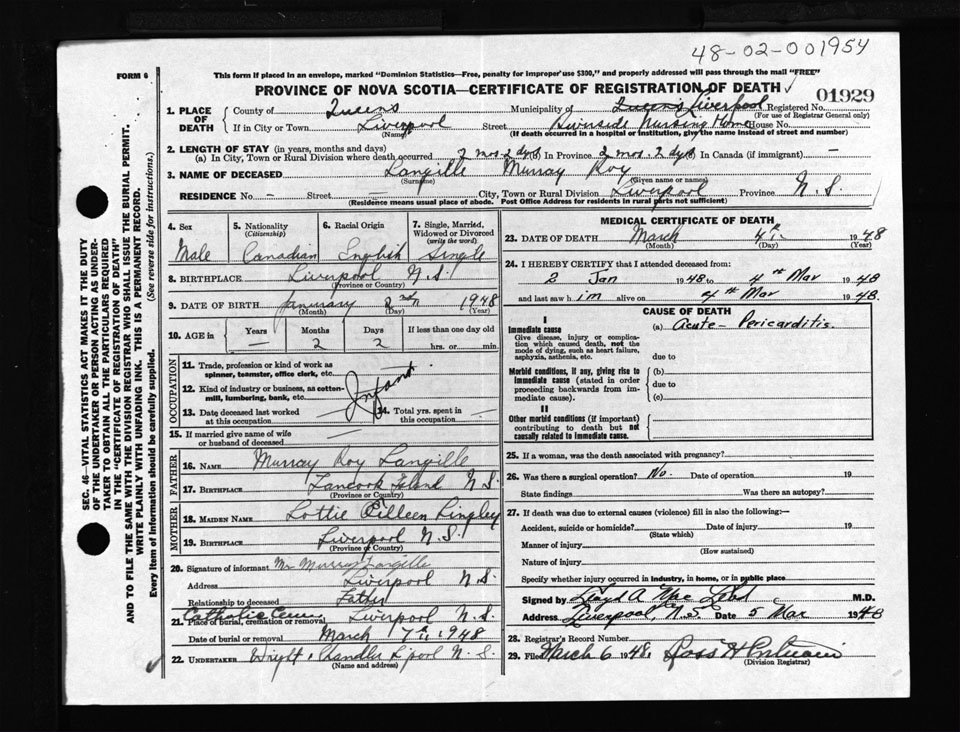 48-02-001954
FORM 6
This form if placed in an envelope, marked "Dominion Statistics—Free, penalty for improper use $300," and properly addressed will pass through the mail "FREE"
PROVINCE OF NOVA SCOTIA—CERTIFICATE OF REGISTRATION OF DEATH
01929
1. PLACE OF DEATH County of Queens Municipality of Queens Liverpool Registered No.
(For use of Registrar General only)
If in City or Town Liverpool Street Riverside Nursing Home House No.
(Name) (If death occurred in a hospital or institution, give the name instead of street and number)
2. LENGTH OF STAY (in years, months and days)
(a) In City, Town or Rural Division where death occurred 2 mos 2 dys (b) In Province 2 mos 2 dys In Canada (if immigrant) —
3. NAME OF DECEASED Langille Murray Roy
(Surname) (Given name or names)
RESIDENCE No. — Street — City, Town or Rural Division Liverpool Province N. S.
(Residence means usual place of abode. Post Office Address for residents in rural parts not sufficient)
SEC. 46—VITAL STATISTICS ACT MAKES IT THE DUTY
OF THE UNDERTAKER OR PERSON ACTING AS UNDER-
TAKER TO OBTAIN ALL THE PARTICULARS REQUIRED
IN THE "CERTIFICATE OF REGISTRATION OF DEATH"
AND TO FILE THE SAME WITH THE DIVISION REGISTRAR WHO SHALL ISSUE THE BURIAL PERMIT.
WRITE PLAINLY WITH UNFADING INK. THIS IS A PERMANENT RECORD.
Every item of Information should be carefully supplied. (See reverse side for instructions.)
4. Sex 5. Nationality (Citizenship) 6. Racial Origin 7. Single, Married, Widowed or Divorced (write the word)
Male Canadian English Single
8. BIRTHPLACE Liverpool N. S.
(Province or Country)
9. DATE OF BIRTH January 2nd 1948
(Month) (Day) (Year)
10. AGE in Years Months Days If less than one day old
— 2 2 hrs. or min.
OCCUPATION
11. Trade, profession or kind of work as spinner, teamster, office clerk, etc.
12. Kind of industry or business, as cotton-mill, lumbering, bank, etc.
Infant
13. Date deceased last worked at this occupation — 14. Total yrs. spent in this occupation —
15. If married give name of wife or husband of deceased —
FATHER
16. NAME Murray Roy Langille
17. BIRTHPLACE Tancook Island N S.
(Province or Country)
MOTHER
18. MAIDEN NAME Lottie Eilleen
19. BIRTHPLACE Liverpool N. S.
(Province or Country)
20. Signature of informant Mr Murray Langille
Address Liverpool N. S.
Relationship to deceased Father
Catholic Cem
21. Place of burial, cremation or removal Liverpool N. S.
Date of burial or removal March 7th 1948
22. UNDERTAKER Wright & Chandler L'pool N. S.
(Name and address)
MEDICAL CERTIFICATE OF DEATH
23. DATE OF DEATH March 4th 1948
(Month) (Day) (Year)
24. I HEREBY CERTIFY that I attended deceased from:
2 Jan 1948 to 4th Mar 1948
and last saw him alive on 4th Mar 1948.
CAUSE OF DEATH
I
Immediate cause (a) Acute - Pericarditis.
Give disease, injury or complication which caused death, not the mode of dying, such as heart failure, asphyxia, asthenia, etc. due to
Morbid conditions, if any, giving rise to immediate cause (stated in order proceeding backwards from immediate cause). (b)
due to
(c)
II
Other morbid conditions (if important) contributing to death but not causally related to immediate cause.
25. If a woman, was the death associated with pregnancy?
26. Was there a surgical operation? No. Date of operation 19
State findings Was there an autopsy?
27. If death was due to external causes (violence) fill in also the following:—
Accident, suicide or homicide? Date of injury 19
(State which)
Manner of injury
(How sustained)
Nature of injury
Specify whether injury occurred in industry, in home, or in public place
Signed by Lloyd A. Mac Leod M.D.
Address Liverpool, N.S. Date 5 Mar 1948
28. Registrar's Record Number
29. Filed March 6 1948.
(Division Registrar)